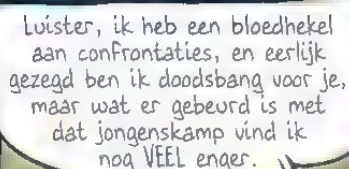 Luister, ik heb een bloedhekel
aan confrontaties, en eerlijk
gezegd ben ik doodsbang voor je,
maar wat er gebeurd is met
dat jongenskamp vind ik
nog VEEL enger.